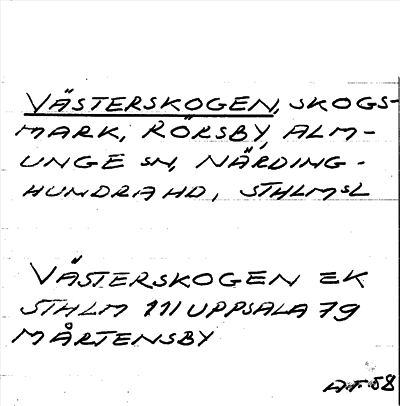 VÄSTERSKOGEN, SKOGS-
MARK, RÖRSBY, ALM-
UNGE SN, NÄRDING-
HUNDRA HD, STHLMS L
VÄSTERSKOGEN EK
STHLM 111 UPPSALA 79
MÅRTENSBY
A.F. 58